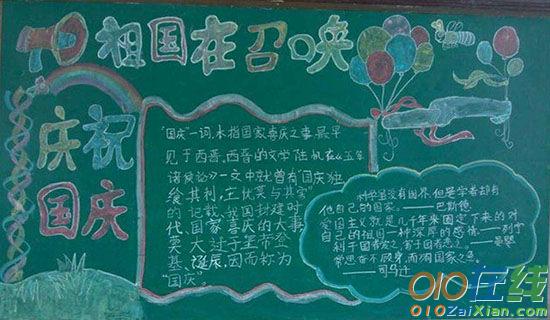 祖国在召唤
庆祝
国庆
"国庆"一词,本指国家喜庆之事,最早
见于西晋,西晋的文学陆机在《五等
诸侯论》一文中就曾有"国庆独
飨其利,主忧莫与其害"
的记载,我国封建时
代、国家喜庆的大事
莫大过于皇帝登
基、诞辰,因而称为
"国庆"。
科学虽没有国界,但是学者却有
他自己的国家。——巴斯德
爱国主义就是几千年来固定下来的对
自己的祖国一种深厚的感情——列宁
利于国者爱之,害于国者恶之。——晏婴
常思奋不顾身,而殉国家之急。
——司马迁
010在线
010ZaiXian.com